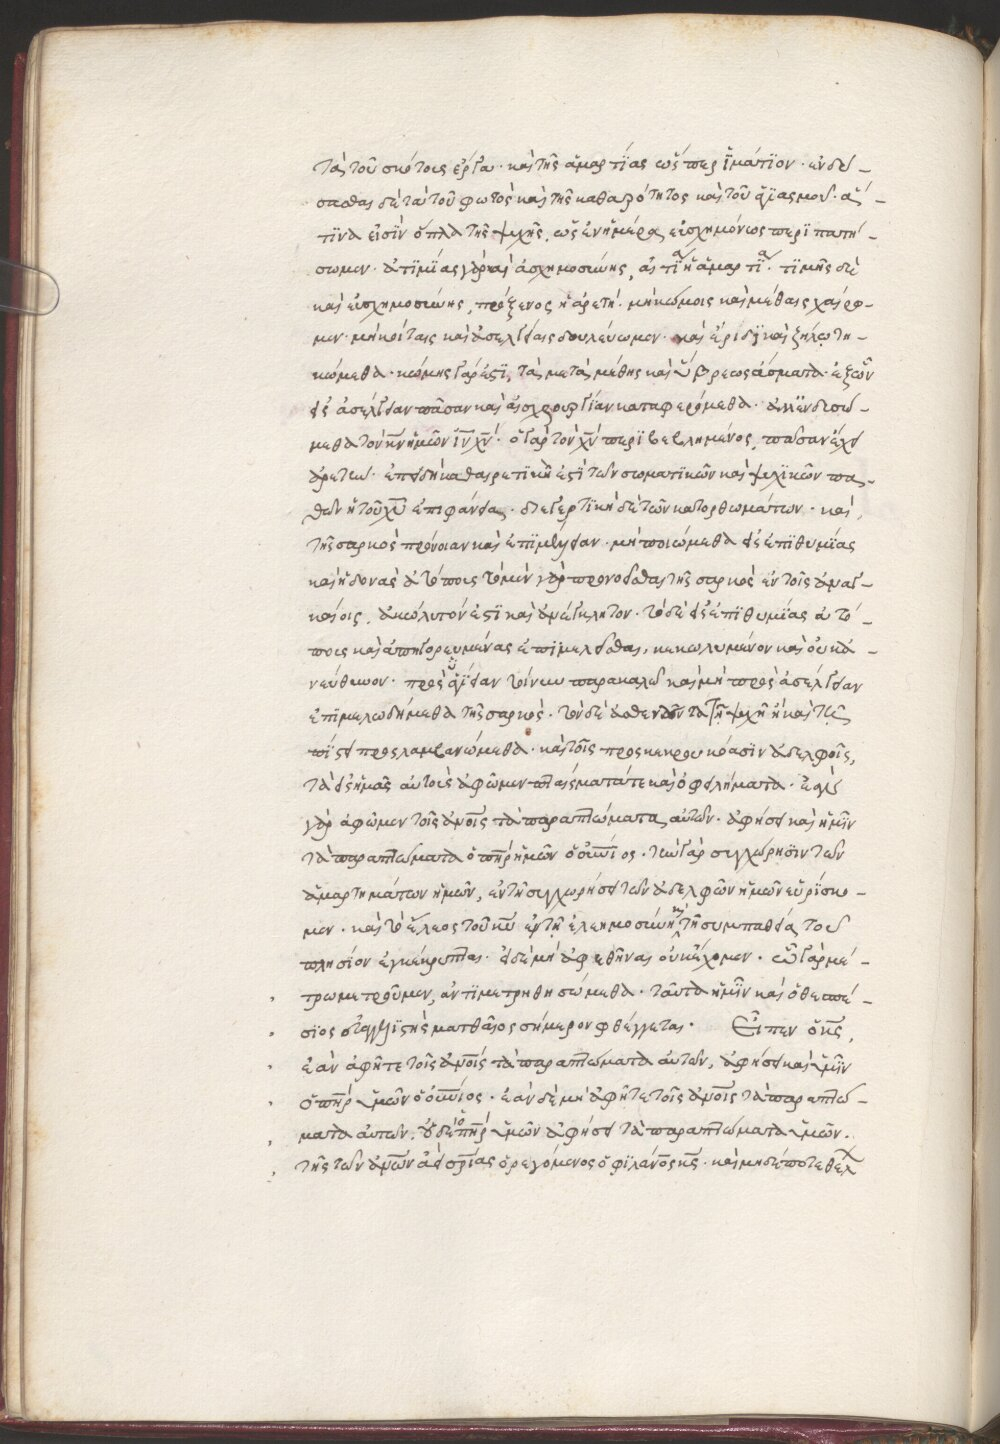 τὰ τοῦ σκότους ἔργα· καὶ τῆς ἁμαρτίας ὥσπερ ἱμάτιον· ἐνδύ-
σασθαι δὲ τὰ τοῦ φωτὸς καὶ τῆς καθαρότητος καὶ τοῦ ἁγιασμοῦ· ἅ-
τινα εἰσὶν ὅπλα τῆς ψυχῆς, ὡς ἐν ἡμέρᾳ εὐσχημόνως περιπατή-
σωμεν· ἀτιμίας γὰρ καὶ ἀσχημοσύνης, αἰτία ἡ ἁμαρτία· τιμῆς δὲ
καὶ εὐσχημοσύνης, πρόξενος ἡ ἀρετή· μὴ κώμοις καὶ μέθαις χαίρω-
μεν· μὴ κοίταις καὶ ἀσελγείαις δουλεύωμεν· καὶ ἔριδι καὶ ζήλῳ τη-
κώμεθα· κώμης γάρ ἐστι, τὰ μετὰ μέθης καὶ ὕβρεως ᾄσματα· ἐξ ὧν
εἰς ἀσέλγειαν πᾶσαν καὶ αἰσχρουργίαν καταφερόμεθα· ἀλλ' ἐνδυσώ-
μεθα τὸν κν ἡμῶν ιν χν· ὁ γὰρ τὸν χν περιβεβλημένος, πᾶσαν ἔχει
ἀρετήν· ἐπειδὴ καθαιρετική ἐστι τῶν σωματικῶν καὶ ψυχικῶν πα-
θῶν ἡ τοῦ χυ ἐπιφάνεια· διεγερτικὴ δὲ τῶν κατορθωμάτων· καὶ
τῆς σαρκὸς πρόνοιαν καὶ ἐπιμέλειαν· μὴ ποιώμεθα εἰς ἐπιθυμίας
καὶ ἡδονὰς ἀτόπους· τὸ μὲν γὰρ προνοεῖσθαι τῆς σαρκὸς ἐν τοῖς ἀναγ-
καίοις, ἀκώλυτόν ἐστι καὶ ἀνέγκλητον· τὸ δὲ εἰς ἐπιθυμίας ἀτό-
πους καὶ ἀπηγορευμένας ἐπιμελεῖσθαι, κεκωλυμένον καὶ οὐκ ἀ-
νεύθυνον· πρὸς ὑγίειαν τοίνυν παρακαλῶ καὶ μὴ πρὸς ἀσέλγειαν
ἐπιμελωθήμεθα τῆς σαρκός· τὸν δὲ ἀσθενοῦντα τῇ ψυχῇ ἢ καὶ τῇ
πίστει προσλαμβανώμεθα· καὶ τοῖς προσκεκρουκόασιν ἀδελφοῖς,
τὰ εἰς ἡμᾶς αὐτοὺς ἀφῶμεν πταίσματά τε καὶ ὀφειλήματα· ἐὰν
γὰρ ἀφῶμεν τοῖς ἀνοις τὰ παραπτώματα αὐτῶν· ἀφήσει καὶ ἡμῖν
τὰ παραπτώματα ὁ πηρ ἡμῶν ὁ οὐνιος· τὴν γὰρ συγχώρησιν τῶν
ἁμαρτημάτων ἡμῶν, ἐν τῇ συγχωρήσει τῶν ἀδελφῶν ἡμῶν εὑρίσκο-
μεν· καὶ τὸ ἔλεος τοῦ κυ ἐν τῇ ἐλεημοσύνῃ κ τῇ συμπαθείᾳ τοῦ
πλησίον ἐγκέκρυπται· εἰ δὲ μή ἀφεθῆναι οὐκ ἔχομεν· ᾧ γὰρ μέ-
τρῳ μετροῦμεν, ἀντιμετρηθησώμεθα· ταῦτα ἡμῖν καὶ ὁ θεσπέ-
σιος εὐαγγελιστὴς ματθαῖος σήμερον φθέγγεται· Εἶπεν ὁ κς,
ἐὰν ἀφῆτε τοῖς ἀνοις τὰ παραπτώματα αὐτῶν, ἀφήσει καὶ ὑμῖν
ὁ πηρ ὑμῶν ὁ οὐνιος· ἐὰν δὲ μὴ ἀφῆτε τοῖς ἀνοις τὰ παραπτώ-
ματα αὐτῶν· οὐδὲ ὁ πηρ ὑμῶν ἀφήσει τὰ παραπτώματα ὑμῶν·
τῆς τῶν ἀνων ἀεὶ σριας ὀρεγόμενος ὁ φιλάνος κς· καὶ μηδέποτε θελ